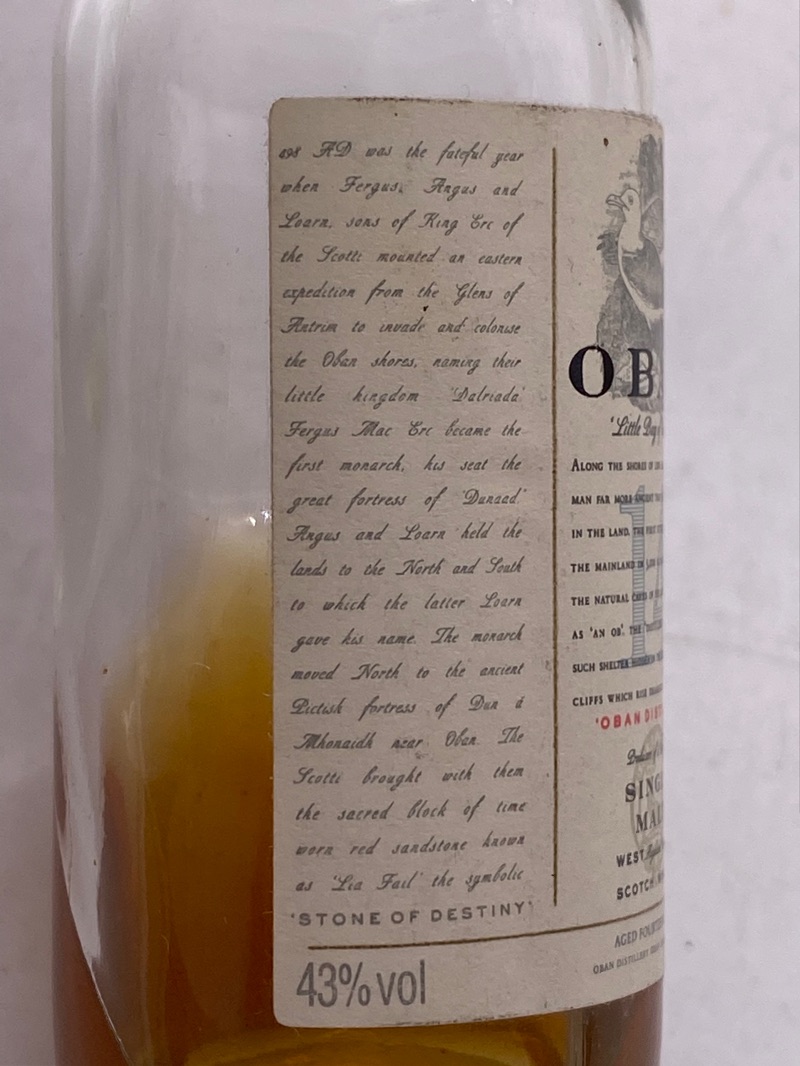 498 AD was the fateful year
when Fergus, Angus and
Loarn, sons of King Erc of
the Scotti mounted an eastern
expedition from the Glens of
Antrim to invade and colonise
the Oban shores, naming their
little kingdom 'Dalriada'
Fergus Mac Erc became the
first monarch, his seat the
great fortress of 'Dunaad'
Angus and Loarn held the
lands to the North and South
to which the latter Loarn
gave his name. The monarch
moved North to the ancient
Pictish fortress of Dun á
Mhonaidh near Oban. The
Scotti brought with them
the sacred block of time
worn red sandstone known
as 'Lia Fail' the symbolic
'STONE OF DESTINY'
43% vol
OB
'Little Bay
ALONG THE SHORES OF
MAN FAR MORE ANCIENT
IN THE LAND, THE
THE MAINLAND IN
THE NATURAL
AS 'AN OB'. THE
SUCH SHELTER
CLIFFS WHICH RISE
'OBAN DIST
SING
MAL
WEST
SCOTCH
AGED FOURTEEN
OBAN DISTILLERY